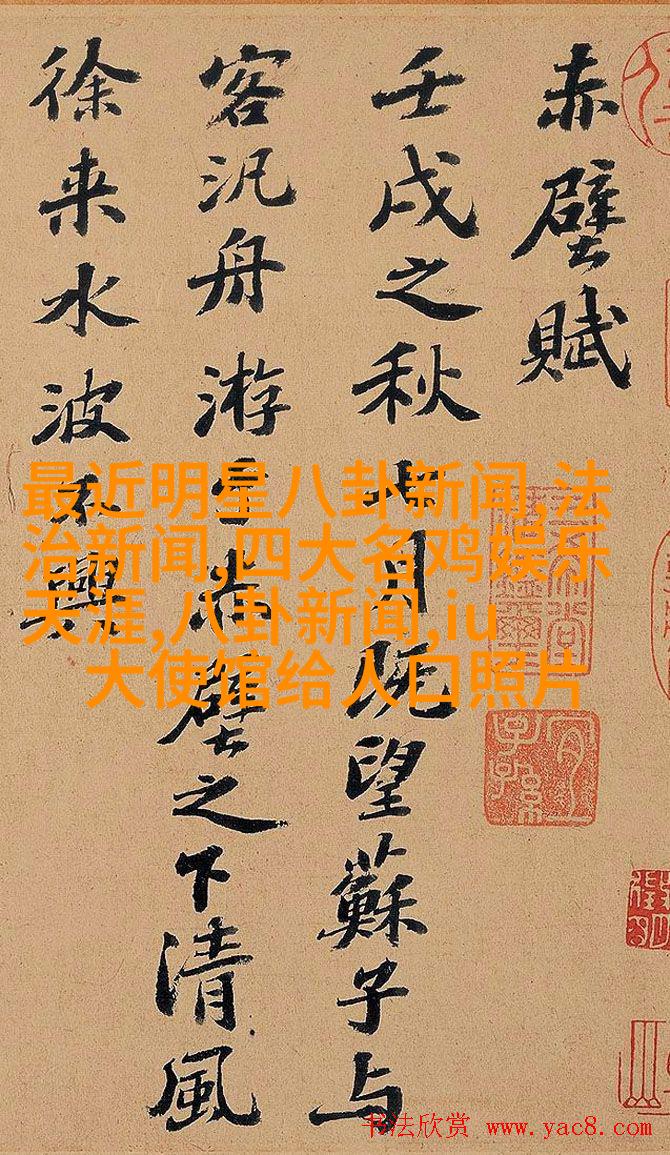 赤壁賦
壬戌之秋七月既望蘇子与
客汎舟游於赤壁之下清風
徐来水波不興
最近明星八卦新闻,法
治新闻,四大名鸡娱乐
天涯,八卦新闻,iu
大使馆给人口照片
书法欣赏 www.yac8.com